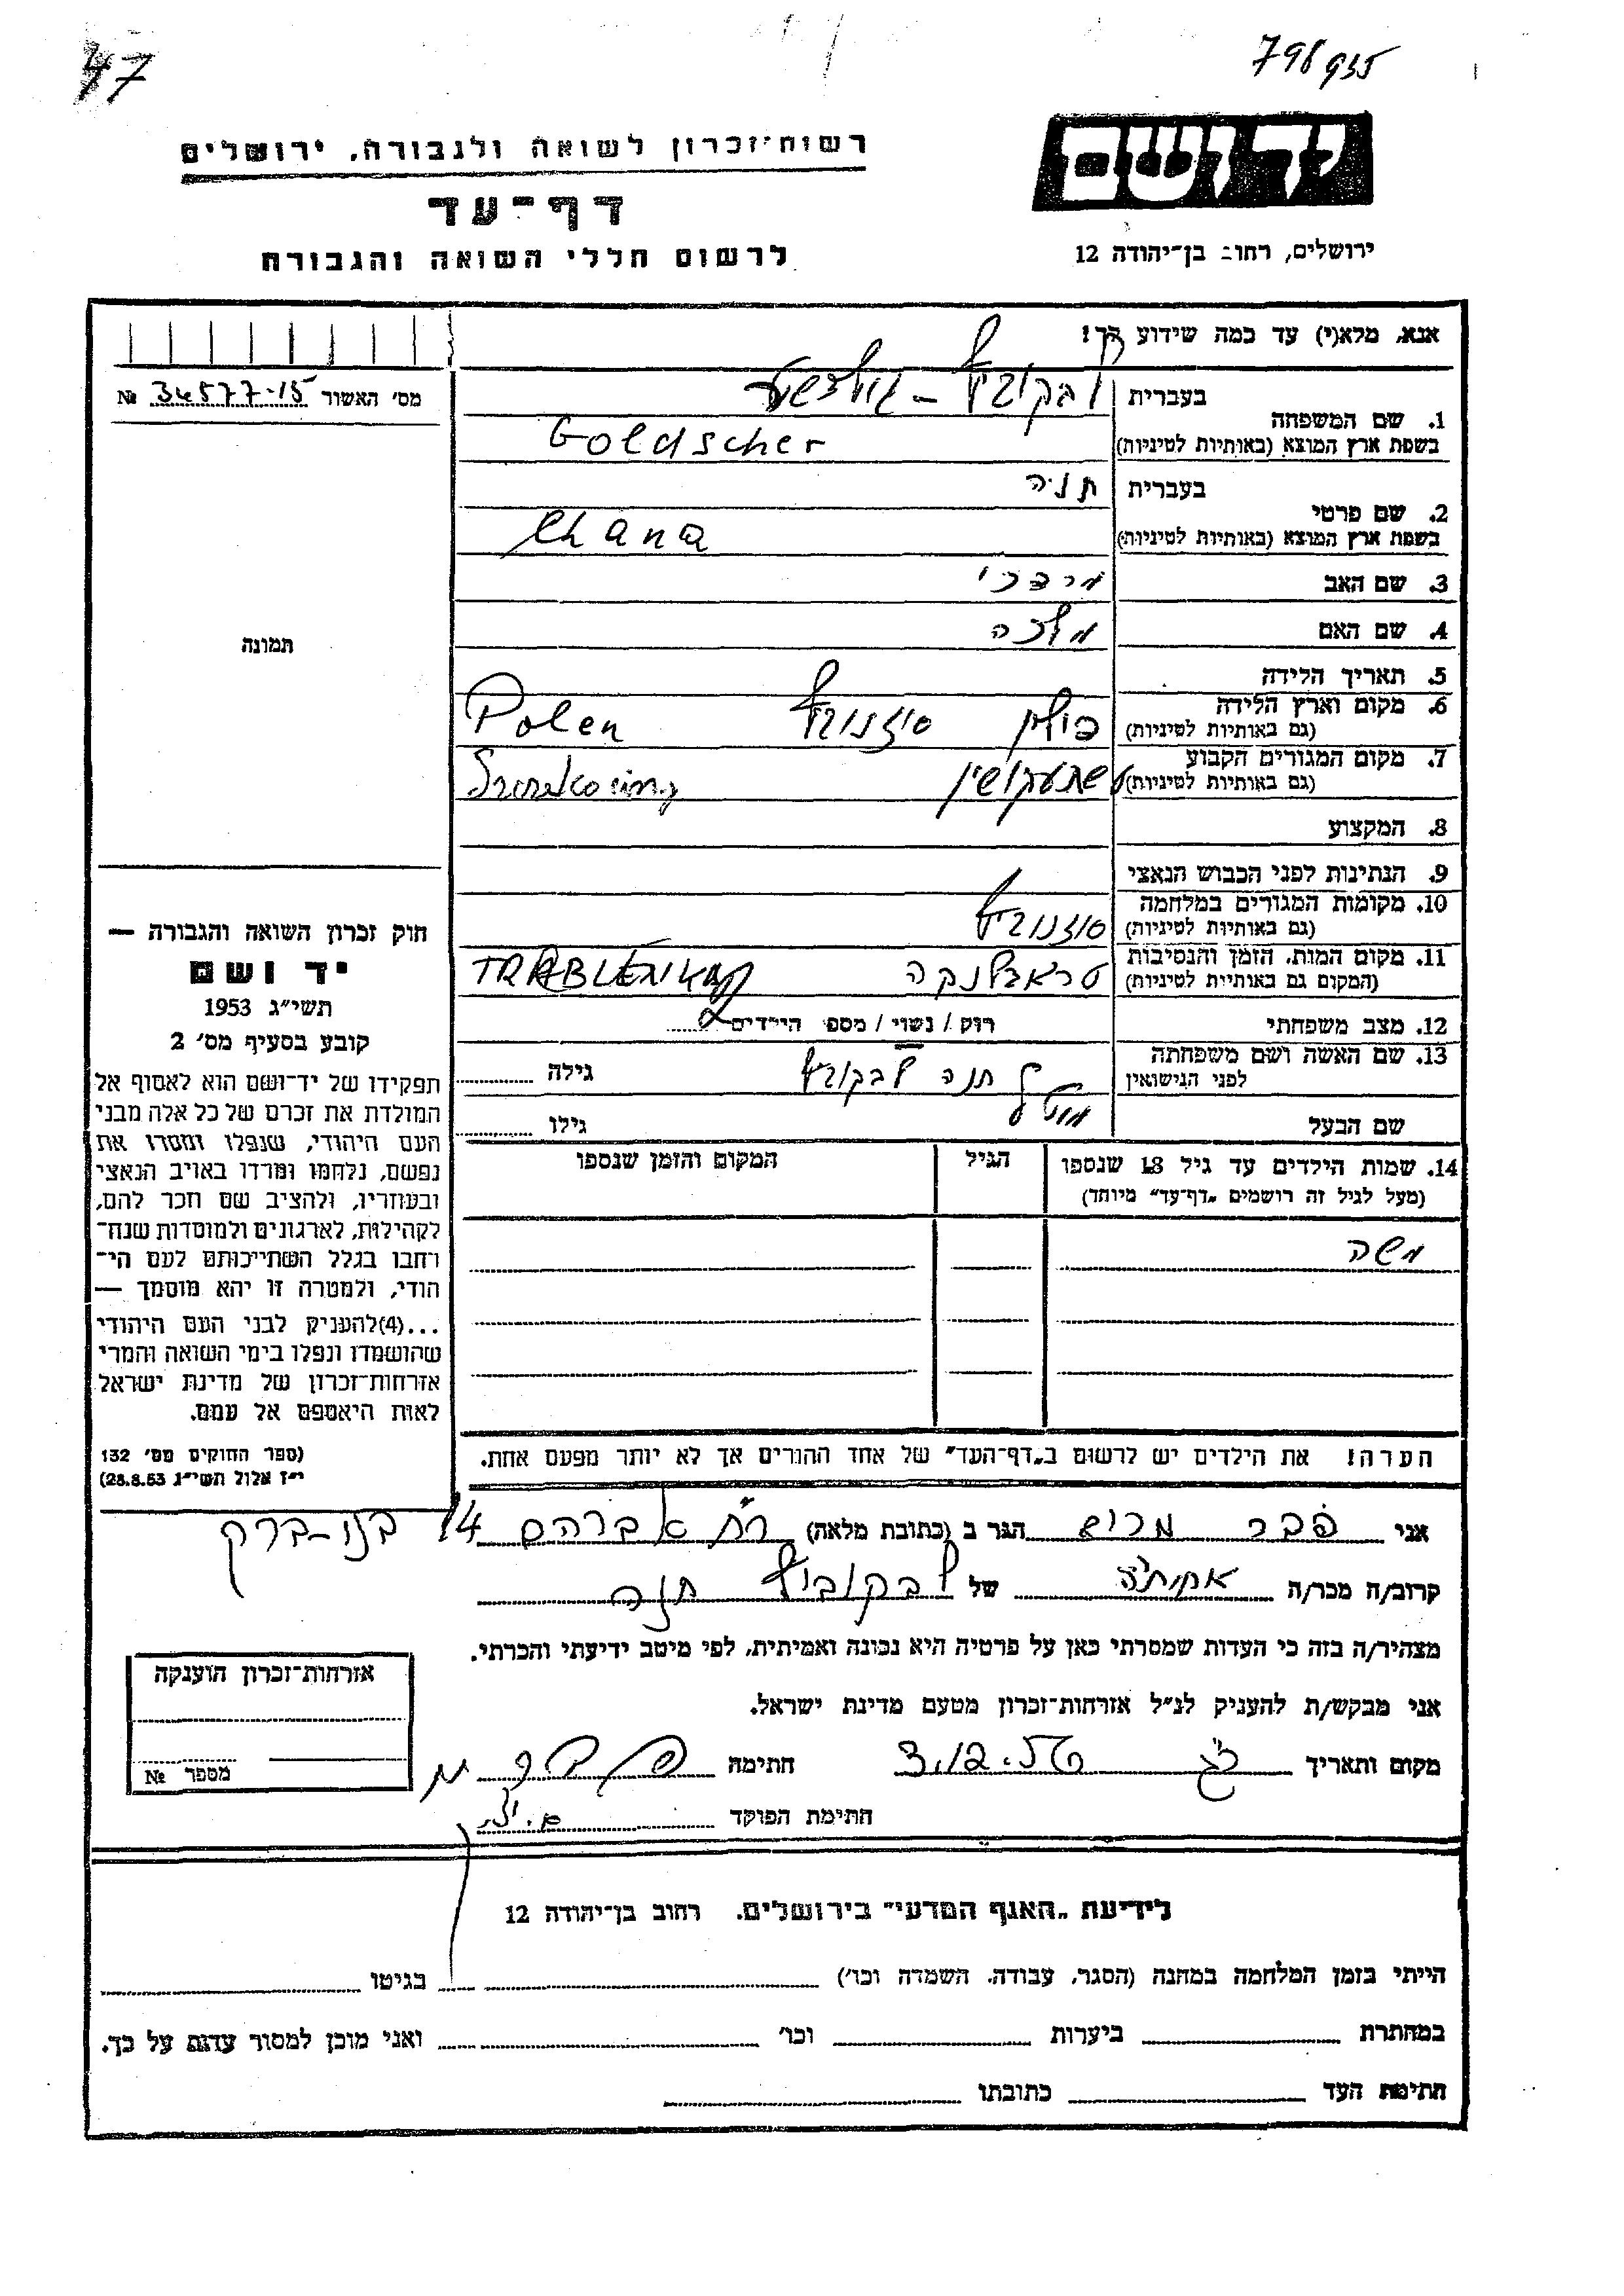 47
798935
יד ושם
רשות־זכרון לשואה ולגבורה, ירושלים
דף־עד
לרשום חללי השואה והגבורה
ירושלים, רחוב בן־יהודה 12
אנא, מלא(י) עד כמה שידוע לך!
מס׳ האשור № 34577-15
תמונה
1. שם המשפחה
בעברית
בשפת ארץ המוצא (באותיות לטיניות) Goldscher
2. שם פרטי
בעברית חנה
בשפת ארץ המוצא (באותיות לטיניות) Chana
3. שם האב מרדכי
4. שם האם מלכה
5. תאריך הלידה
6. מקום וארץ הלידה
(גם באותיות לטיניות) פולין Polen
7. מקום המגורים הקבוע
(גם באותיות לטיניות)
8. המקצוע
9. הנתינות לפני הכבוש הנאצי
10. מקומות המגורים במלחמה
(גם באותיות לטיניות)
11. מקום המות, הזמן והנסיבות
(המקום גם באותיות לטיניות) טראבלנקה
12. מצב משפחתי רוק / נשוי / מספר הילדים
13. שם האשה ושם משפחתה
לפני הנישואין חנה גילה
שם הבעל מוטל גילו
14. שמות הילדים עד גיל 18 שנספו הגיל המקום והזמן שנספו
(מעל לגיל זה רושמים „דף־עד״ מיוחד)
משה
הערה! את הילדים יש לרשום ב„דף־העד״ של אחד ההורים אך לא יותר מפעם אחת.
חוק זכרון השואה והגבורה —
יד ושם
תשי״ג 1953
קובע בסעיף מס׳ 2
תפקידו של יד־ושם הוא לאסוף אל
המולדת את זכרם של כל אלה מבני
העם היהודי, שנפלו ומסרו את
נפשם, נלחמו ומרדו באויב הנאצי
ובעוזריו, ולהציב שם וזכר להם,
לקהילות, לארגונים ולמוסדות שנח־
רבו בגלל השתייכותם לעם הי־
הודי, ולמטרה זו יהא מוסמך —
...(4)להעניק לבני העם היהודי
שהושמדו ונפלו בימי השואה והמרי
אזרחות־זכרון של מדינת ישראל
לאות היאספם אל עמם.
(ספר החוקים מס׳ 132
י״ז אלול תשי״ג 28.8.53)
אני פבר מרים הגר ב (כתובת מלאה) אברהם 14 בני-ברק
קרוב/ה מכר/ה אחותה של לבקוביץ חנה
מצהיר/ה בזה כי העדות שמסרתי כאן על פרטיה היא נכונה ואמיתית, לפי מיטב ידיעתי והכרתי.
אני מבקש/ת להעניק לנ״ל אזרחות־זכרון מטעם מדינת ישראל.
מקום ותאריך חתימה
חתימת הפוקד
אזרחות־זכרון הוענקה
מספר №
לידיעת „האגף המדעי״ בירושלים. רחוב בן־יהודה 12
הייתי בזמן המלחמה במחנה (הסגר, עבודה, השמדה וכו׳) בגיטו
במחתרת ביערות וכו׳ ואני מוכן למסור עדות על כך.
חתימת העד כתובתו